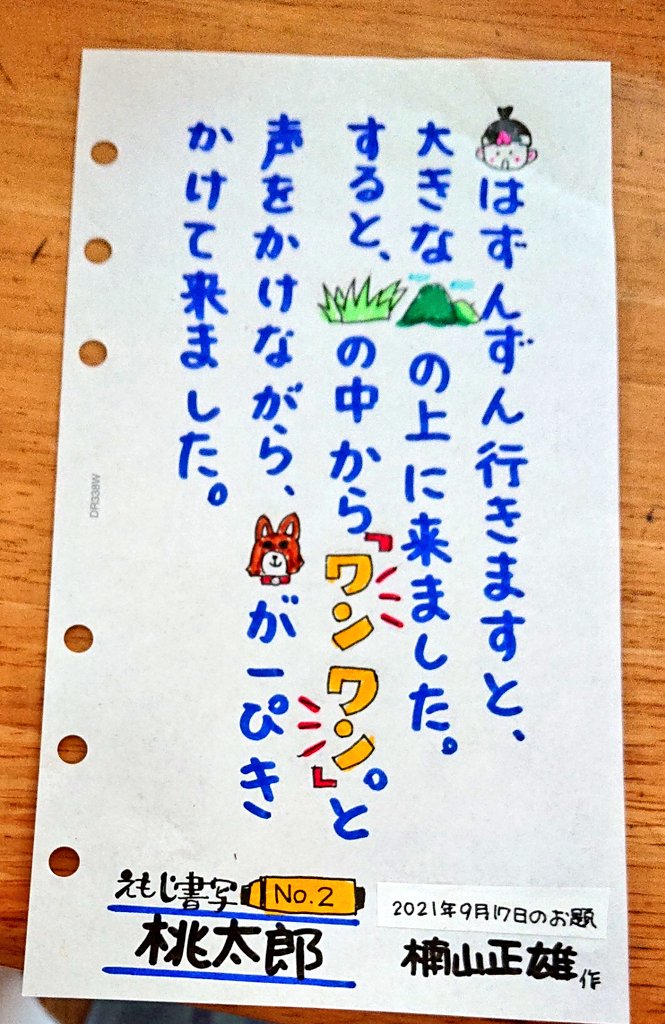 はずんずん行きますと、
大きなの上に来ました。
すると、の中から「ワンワン。」と
声をかけながら、が一ぴき
かけて来ました。
えもじ書写 No.2
桃太郎
2021年9月17日のお題
楠山正雄作
DR338W